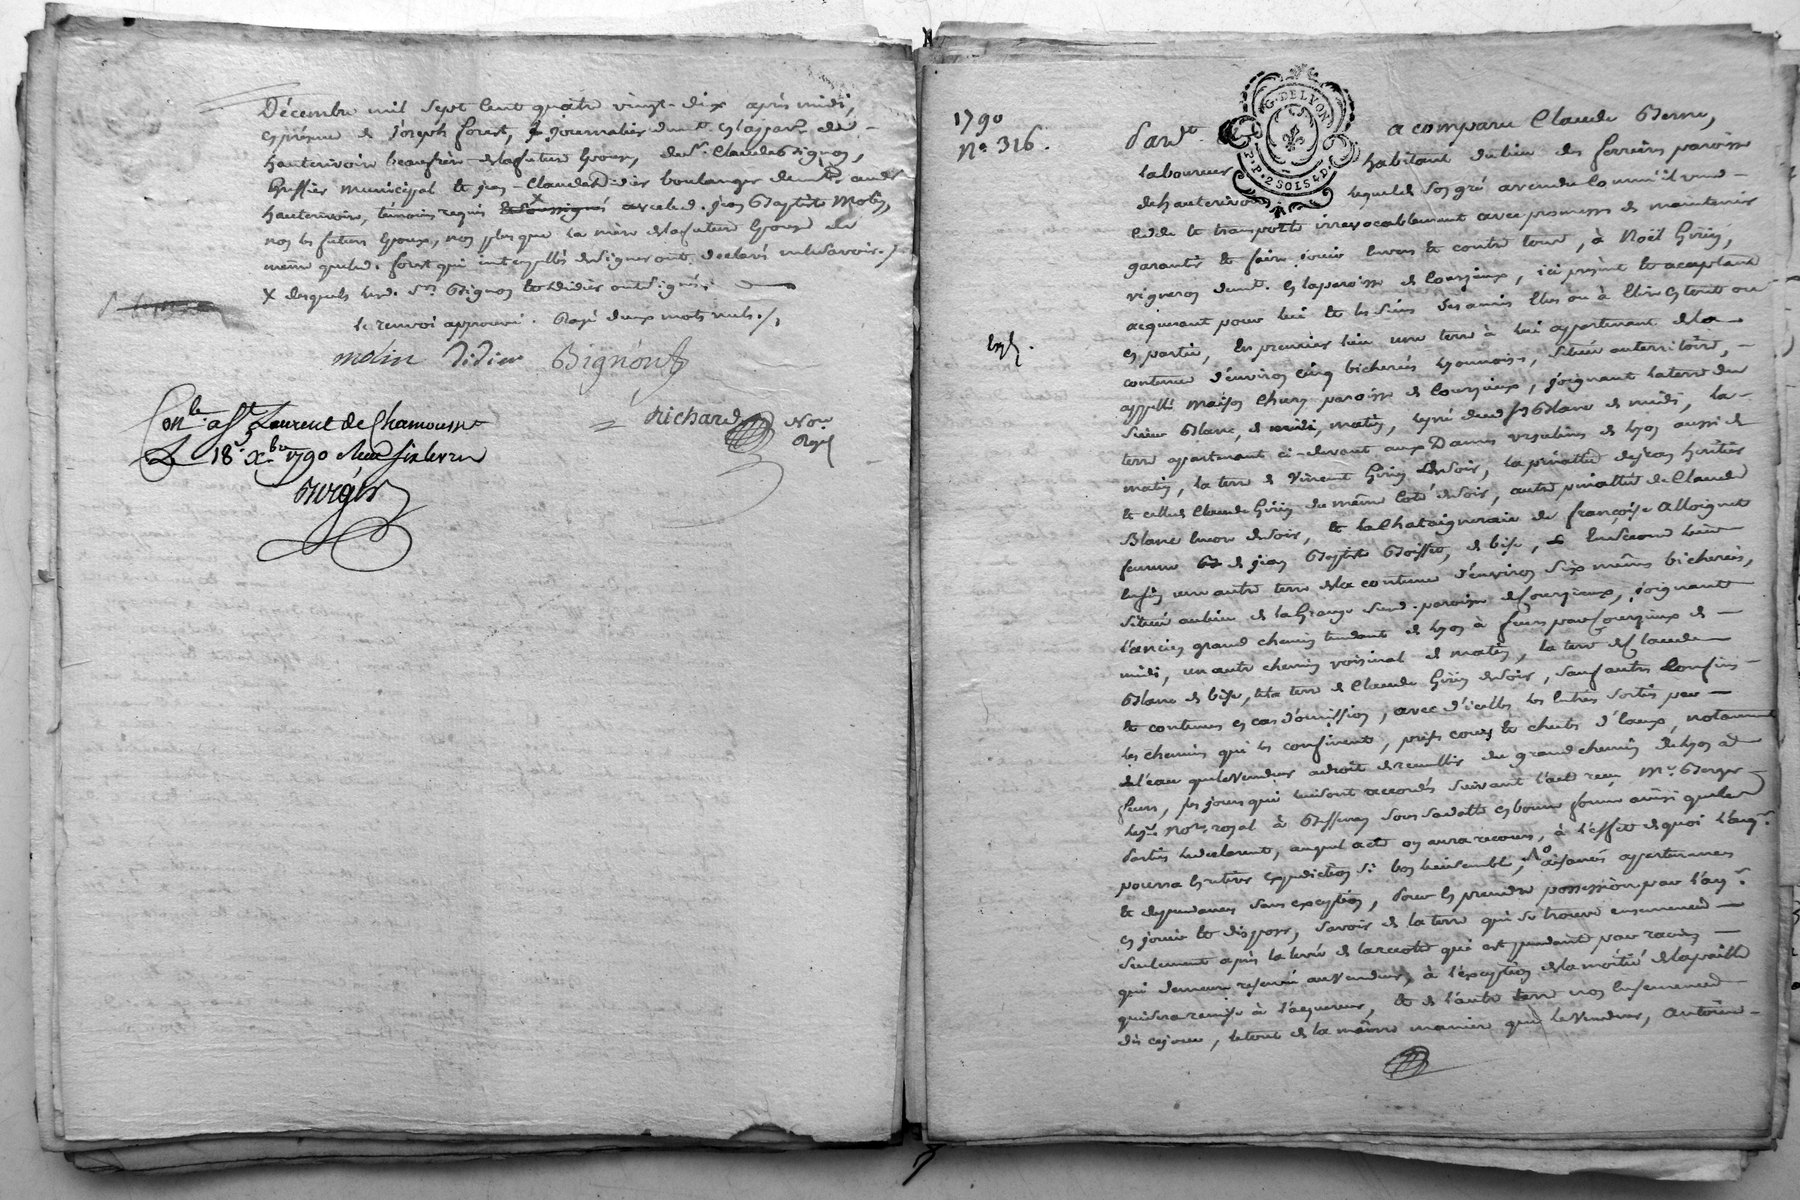 Décembre mil sept cent quatre vingt-dix après midi,
en présence de Joseph forest, journalier demt. en la parse. de
hauterivoire beaufrère de la future Epouse, de sr. Claude Bignon,
Greffier municipal et jean-Claude Didier boulanger demt. aud.
hauterivoire, témoins requis avec led. jean Baptiste Molin,
non les futurs Epoux, non plus que la mère de la future Epouse de
même que led. forest qui interpellés de signer ont déclaré ne le savoir ./.
X desquels led. sr. Bignon et Didier ont signé.
le renvoi approuvé. Rayé deux mots nuls ./.
molin Didier Bignon
Richard Nore.
Royal
Conlé. a St Laurent de Chamousset
Le 18e. Xbre 1790 Reçu six livres
Burgis
1790
No. 316.
G. DE LYON
P. P. 2 SOLS 4 D.
Pardt. a comparu Claude Berne,
laboureur habitant du lieu des ferrières paroisse
de hauterivoire lequel de son gré a vendu comme il vend
cède et transporte irrevocablement avec promesses de maintenir
garantir et faire jouir envers et contre tous, à Noël Giriy,
vigneron demt. en la paroisse de Courzieux, ici présent et acceptant
acquerant pour lui et les siens des amis élus ou à élire en tout ou
en partie, En premier lieu une terre à lui appartenant de la
contenue d'environ cinq bicherées lyonnoises, située au territoire,
appellé maison Chury paroisse de Courzieux, joignant la terre du
sieur Blanc, de matin, dud. sr Blanc de midi, la
terre appartenant ci-devant aux Dames ursulines de lyon aussi de
matin, la terre de Vincent Giriy de soir, la pinatte de jean
et celle de Claude Giriy du même coté de soir, autre pinatte de Claude
Blanc encor de soir, et la Chataigneraie de françoise Alloignet
femme de jean Baptiste Boisset, de bise, En second lieu
enfin une autre terre de la contenue d'environ six mêmes bicherées,
située au lieu de la Grange susd. paroisse de Courzieux, joignant
l'ancien grand chemin tendant de lyon à feurs par Courzieux de
midi, un autre chemin voisinal de matin, la terre de Claude
Blanc de bise, et la terre de Claude Giriy de soir, sauf autres Confins
et contenues en cas d'omission, avec d'icelles les Entrées sorties par
les chemins qui les confinent, prises cours et chutes d'Eaux, notamment
de l'eau que le Vendeur a droit de recueillir du grand chemin de lyon à
feurs, les jours qui lui sont accordés suivant l'acte reçu Me. Berger
Nore royal à Bessenay sous sa datte en bonne forme ainsi que les
Parties le déclarent, auquel acte on aura recours, à l'effet de quoi l'acqr.
pourra s'en tirer expédition si bon lui semble, aisances appartenances
et dependances sans exception, Pour en prendre possession par l'acqr.
en jouir et disposer, savoir de la terre qui se trouve ensemencée
seulement après la levée de la recolte qui est pendante par racines
qui demeure réservée au Vendeur, à l'exception de la moitié de la paille
qui sera remise à l'acquereur, et de l'autre terre non Ensemencée
dès ce jour, le tout de la même manière que le Vendeur, autorisé